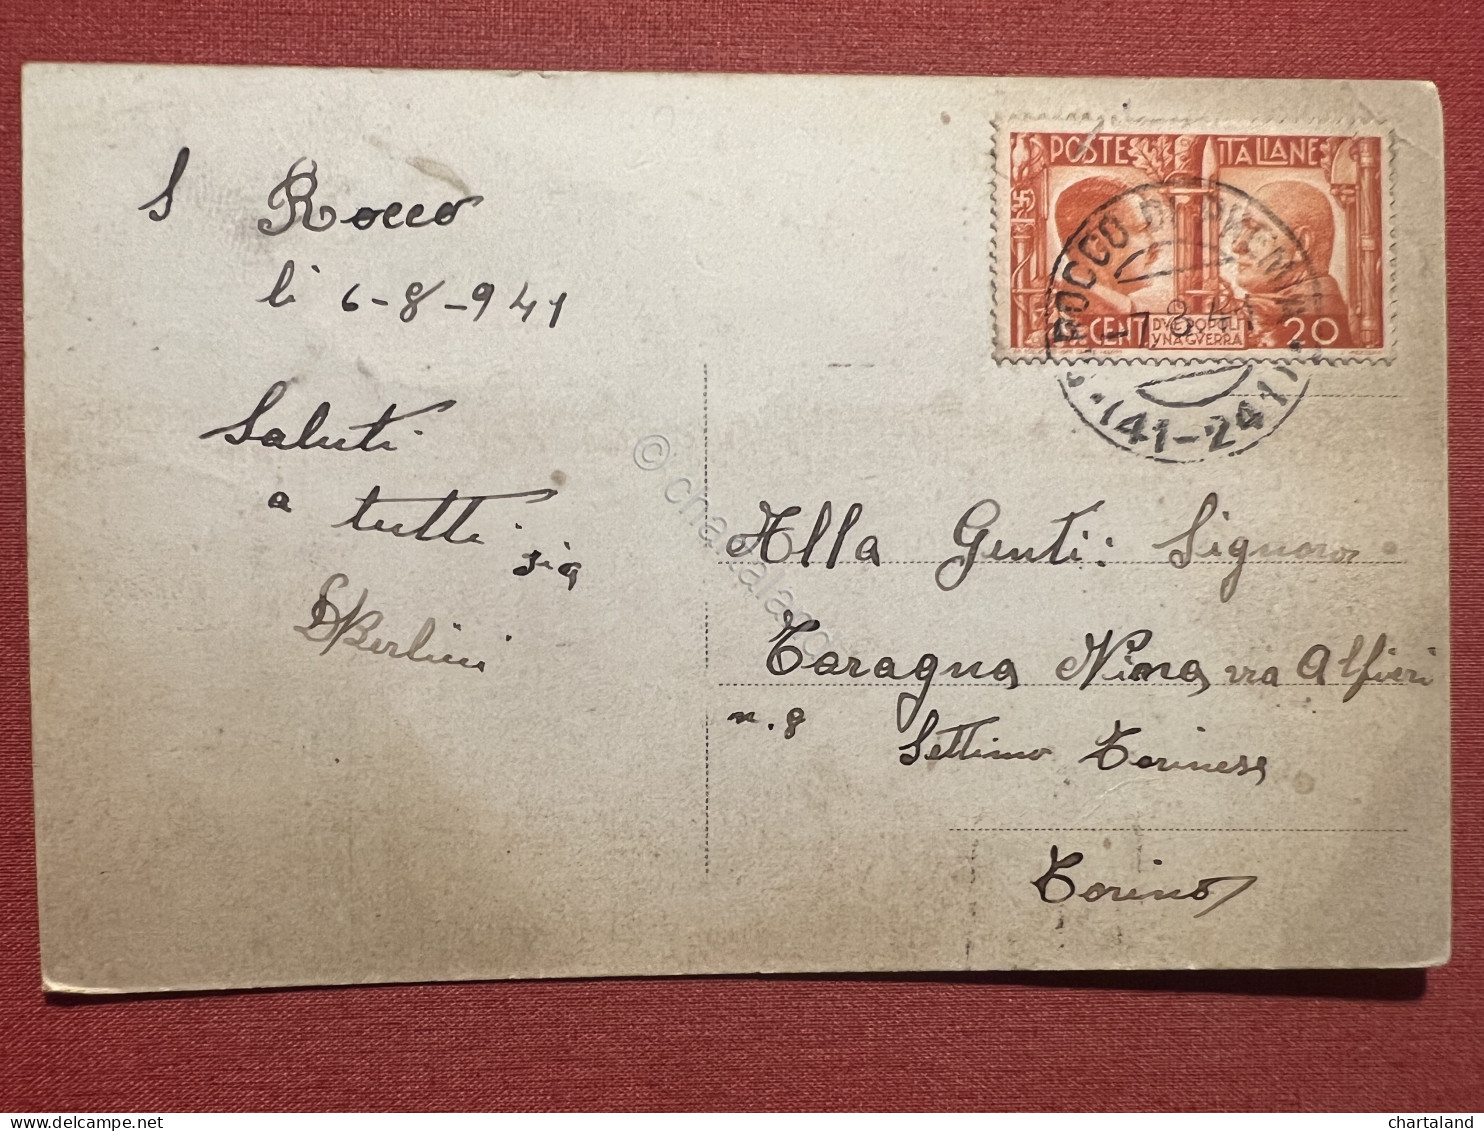 S Rocco
li 6-8-941
Saluti
a tutti
Berlini
POSTE ITALIANE
ROCCO DI PREMIA
-7.8.41
CENT
DVE POPOLI
VNA GVERRA
20
(41-24)
Alla Genti: Signora
Taragna Nina via Alfieri
n. 8
Settimo Torinese
Torino
© chartaland
chartaland
delcampe.net